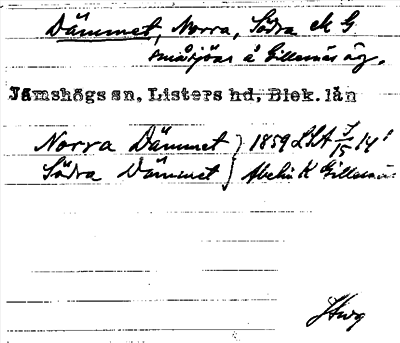 Dämmet, Norra, Södra M G
småsjöar å Gillesnäs äg.
Jämshögs sn, Listers hd, Blek. län
Norra Dämmet } 1859 LSA J/15 14'
Södra Dämmet } Abelin K Gillesnäs